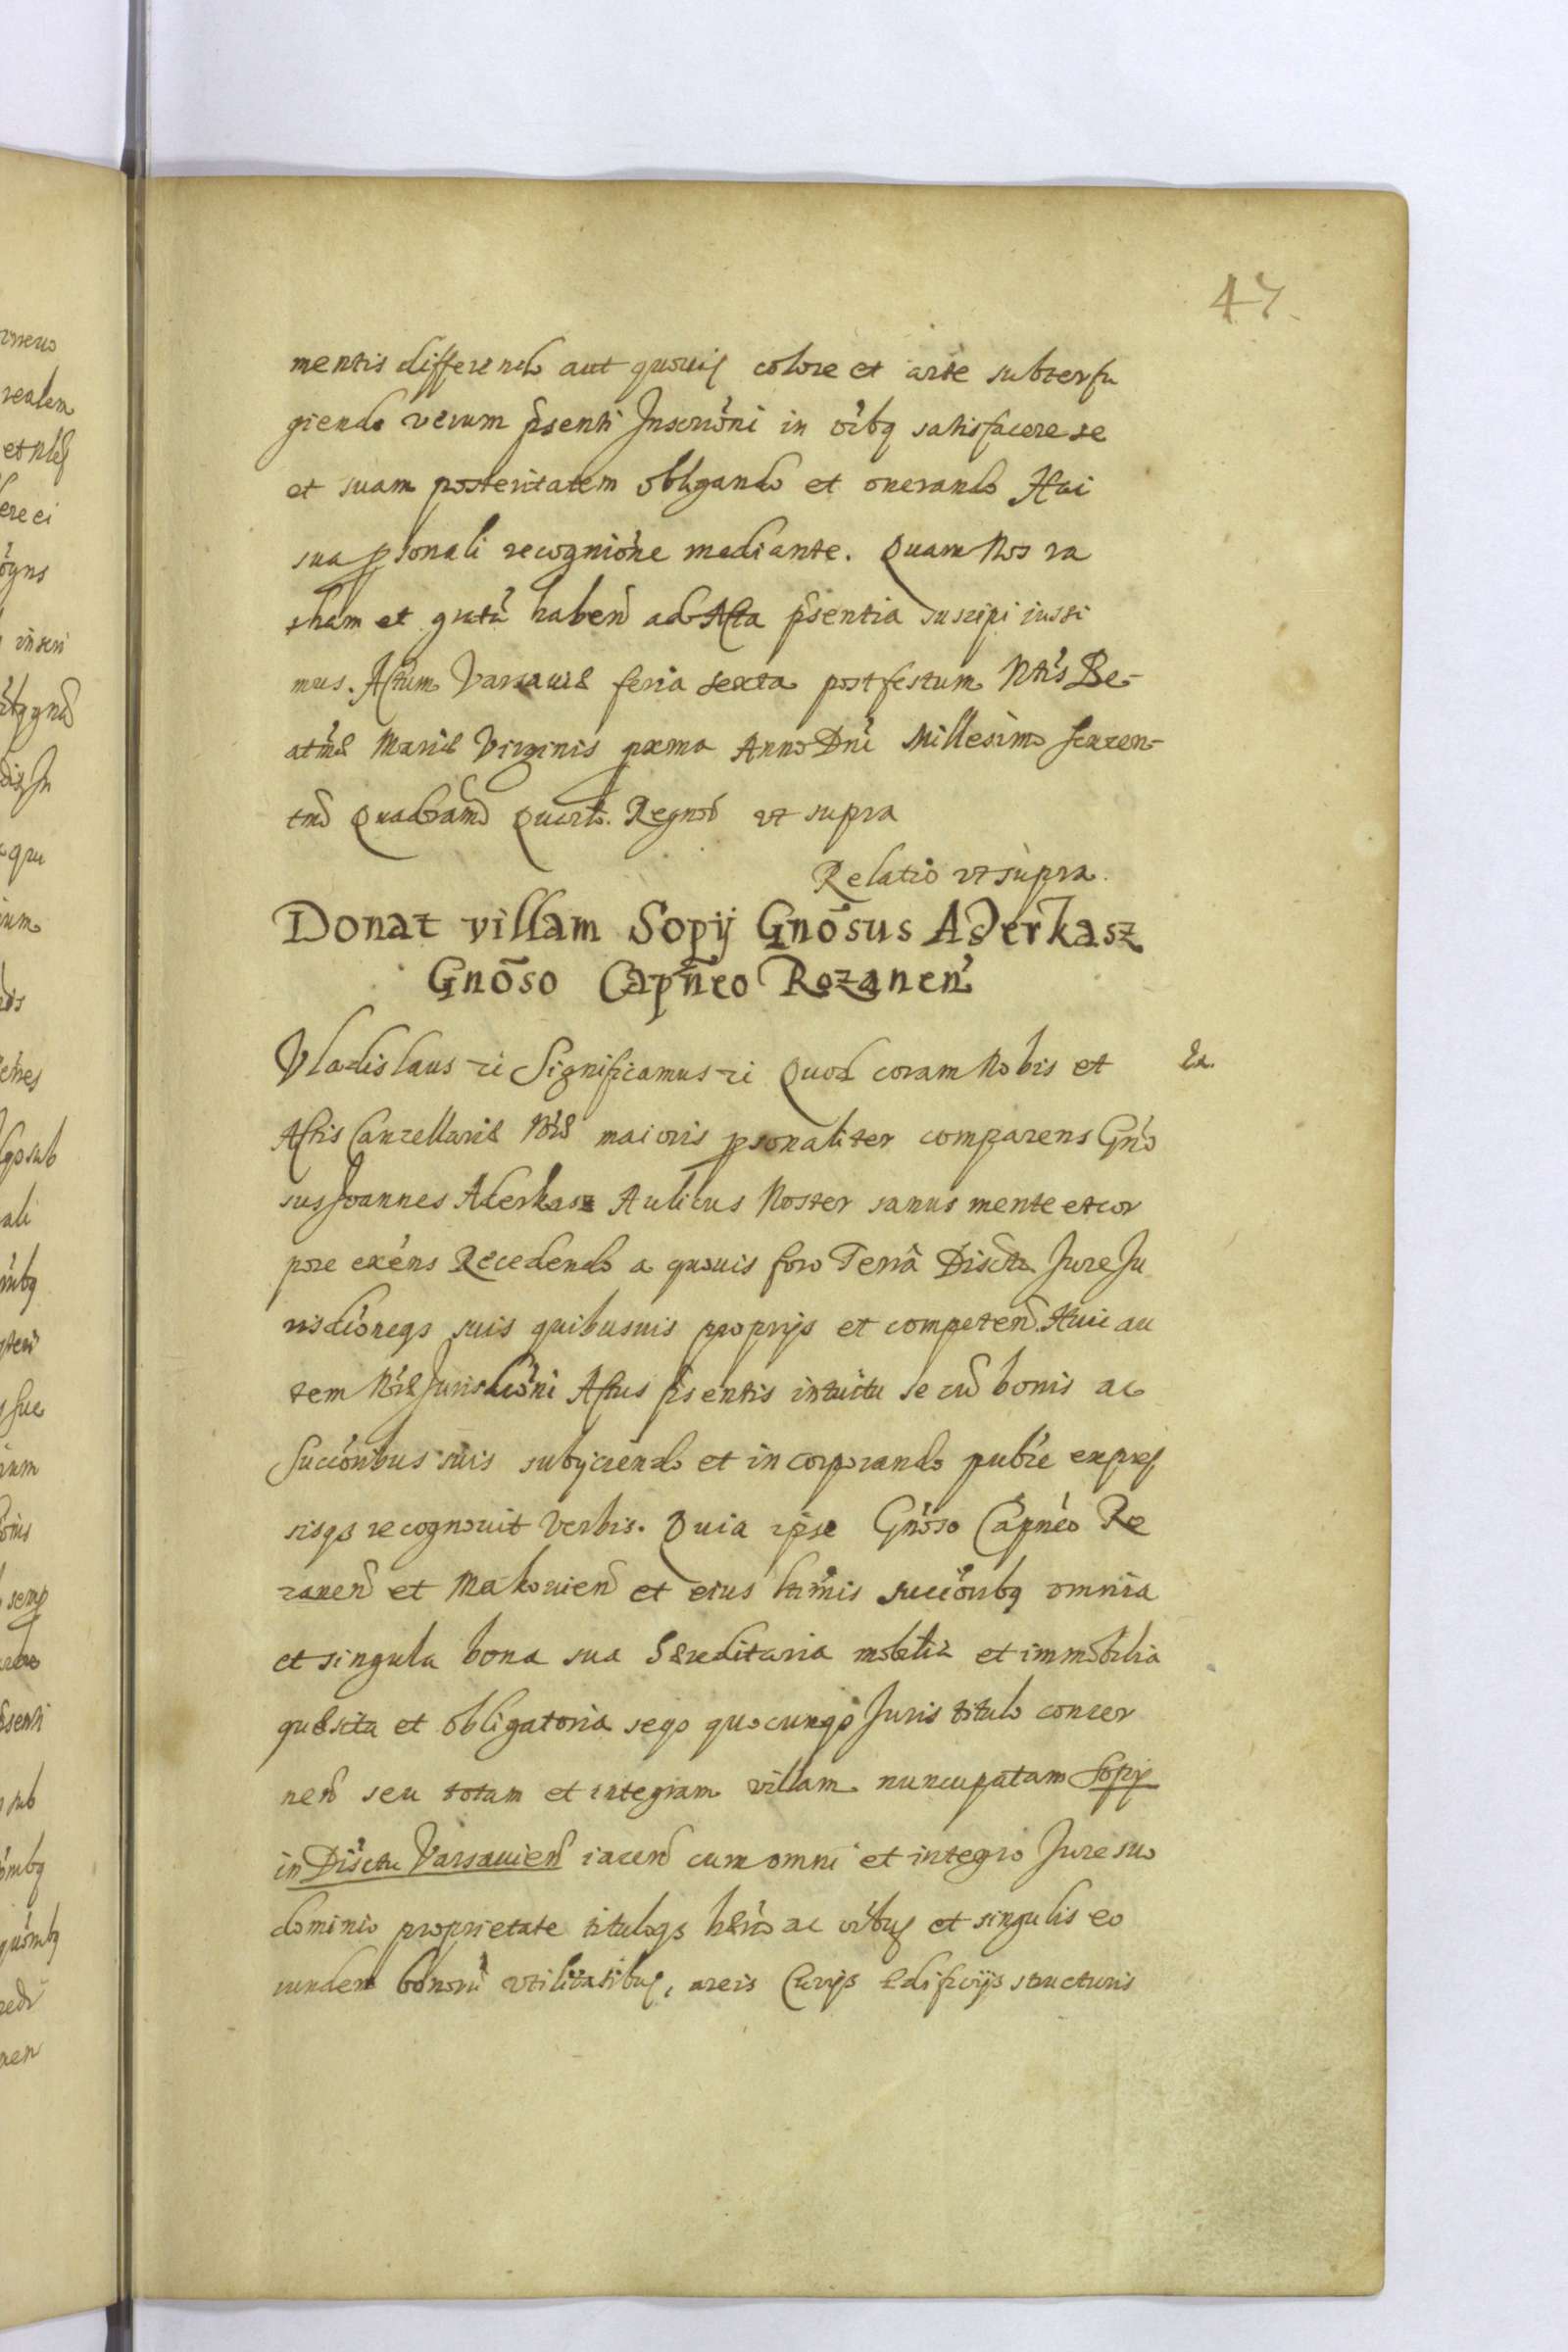 47
mentis differendo aut quovis colore et arte subterfu
giendo verum psenti Inscrioni in oibq satisfacere se
et suam posteritatem obligando et onerando Hac
sua psonali recognione mediante. Quam Nos ra
tham et gratũ habeñ ad Acta psentia suscipi iussi
mus. Actum Varsauiæ feria sexta post festum Ntis Be-
atmæ Mariæ Virginis pxma Anno Dni Millesimo Sexcen-
tmo Quadragmo Quarto. Regnoꝝ vt supra
Relatio vt supra.
Donat villam Sopij Gnõsus Aderkasz
Gnõso Capñeo Rozanen̄
Vladislaus etc Significamus etc Quod coram Nobis et
Ex.
Actis Cancellariæ Nræ maioris psonaliter comparens Gno
sus Joannes Aderkasz Aulicus Noster sanus mente et cor
pore exens Recedendo a quouis foro Terra Disctu Jure Ju
risdioneqs suis quibusuis proprijs et competen̄ Huic au
tem Nræ Jurisdioni Actus psentis intuitu se cũ bonis ac
Succoribus suis subijciendo et incorporando puble expres
sisqs recognouit verbis. Quia ipse Gnoso Capneo Ro
zanen̄ et Makouien̄ et eius ltimis succoribq omnia
et singula bona sua hæreditaria mobilia et immobilia
quæsita et obligatoria seqs quocunqs Juris titulo concer
nen̄ seu totam et integram villam nuncupatam Sopij
in Disctu Varsauien̄ iacen̄ cum omni et integro Jure suo
dominio proprietate tituloqs hærio ac oibus et singulis eo
rundem bonorũ vtilitatibus, areis Curijs ædificijs structuris